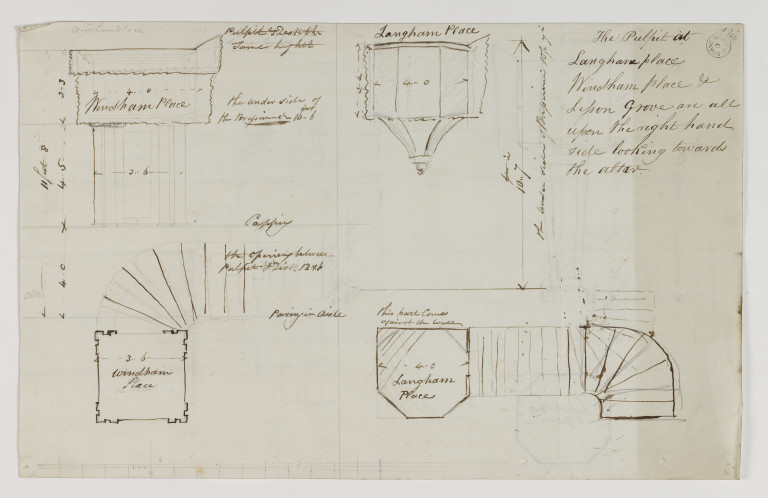 Pulpit & Desk the
same hight
4 - 0
Windham Place
the under side of
the Bressumer 10-6
3-3
11 feet 8
4-5
3-6
4-0
the opening between
Pulpit & Desk 12.6
Paving in Aisle
3-6
Windham
Place
Langham Place
4-0
10..7
the under side of Bressumer
The Pulpit at
Langham place
Windham place &
Lisson Grove are all
upon the right hand
side looking towards
the altar
this part Comes
against the Wall
4-0
Langham
Place